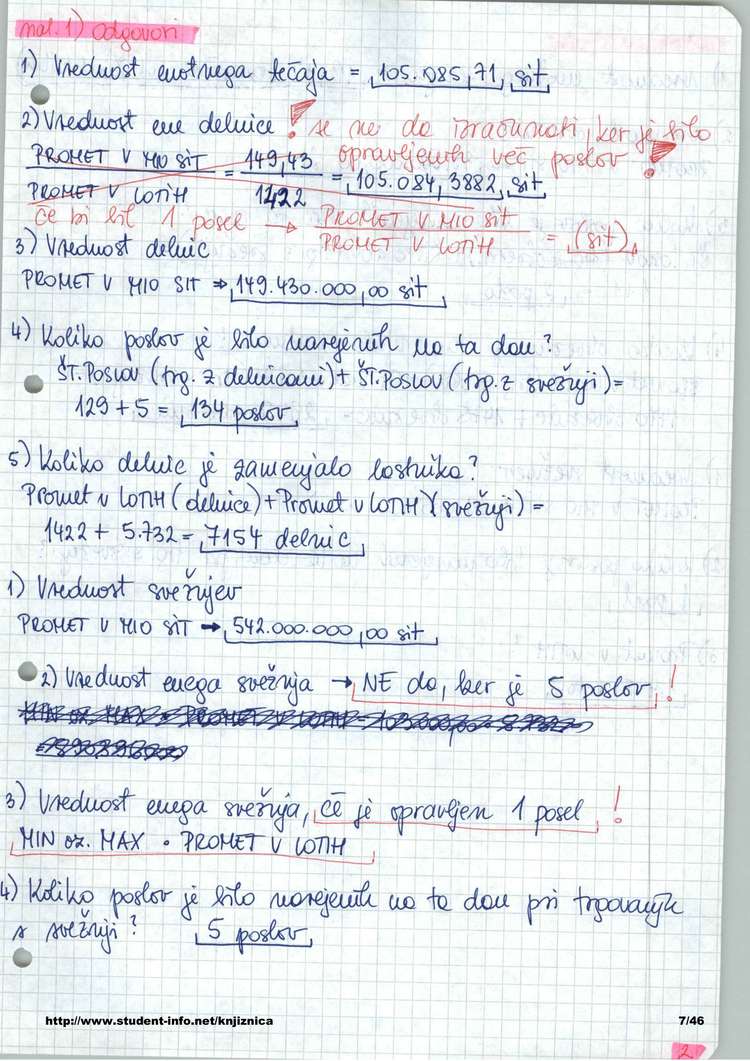 nal. 1) Odgovori
1) Vrednost enotnega tečaja = 105.085,71 sit
2) Vrednost ene delnice! se ne da izračunati, ker je bilo
opravljenih več poslov!
PROMET V MIO SIT / PROMET V LOTIH = 149,43 / 1422 = 105.084,3882 sit
če bi bil 1 posel → PROMET V MIO SIT / PROMET V LOTIH = (sit)
3) Vrednost delnic
PROMET V MIO SIT ⇒ 149.430.000,00 sit
4) Koliko poslov je bilo narejenih na ta dan?
ŠT. POSLOV (trg. z delnicami) + ŠT. POSLOV (trg. z svežnji) =
129 + 5 = 134 poslov
5) Koliko delnic je zamenjalo lastnika?
Promet v LOTIH (delnice) + Promet v LOTIH (svežnji) =
1422 + 5.732 = 7154 delnic
1) Vrednost svežnjev
PROMET V MIO SIT → 542.000.000,00 sit
2) Vrednost enega svežnja → NE da, ker je 5 poslov!
3) Vrednost enega svežnja, če je opravljen 1 posel!
MIN oz. MAX • PROMET V LOTIH
4) Koliko poslov je bilo narejenih na ta dan pri trgovanju
s svežnji? 5 poslov
http://www.student-info.net/knjiznica 7/46
2